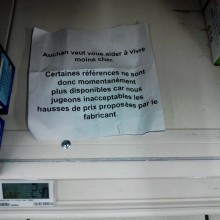 Auchan veut vous aider à Vivre
moins cher.
Certaines références ne sont
donc momentanément
plus disponibles car nous
jugeons inacceptables les
hausses de prix proposées par le
fabricant.